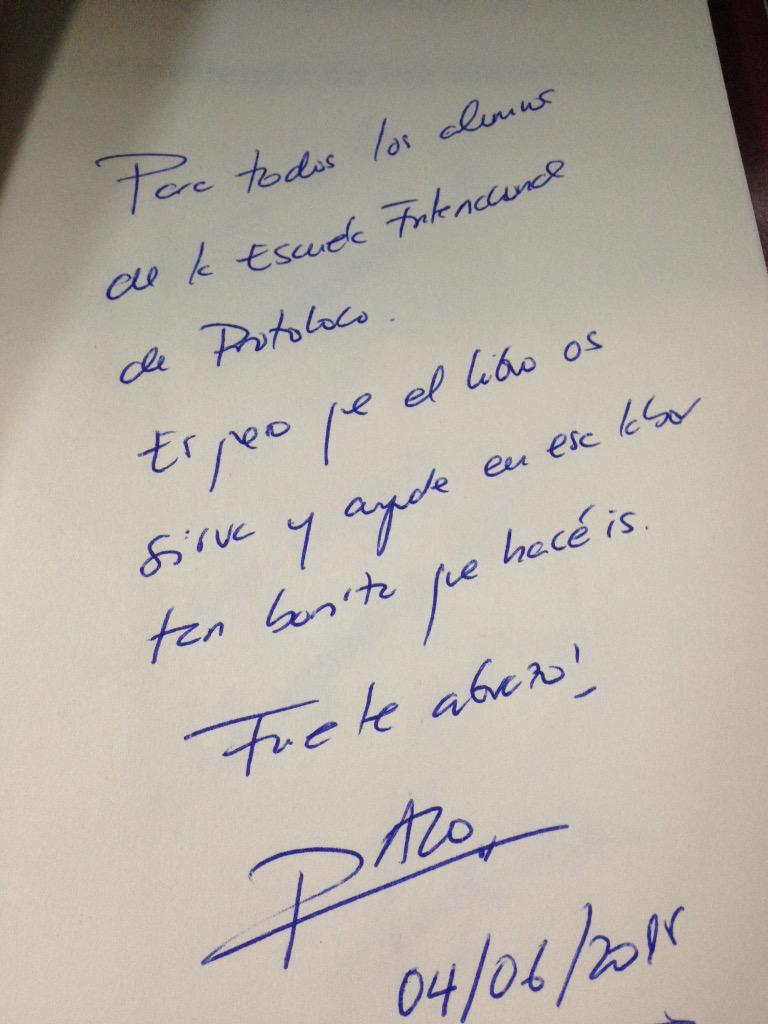 Para todos los alumnos
de la Escuela Internacional
de Protoloco.
Espero que el libro os
sirva y ayude en esa labor
tan bonita que hacéis.
Fuerte abrazo!
04/06/201